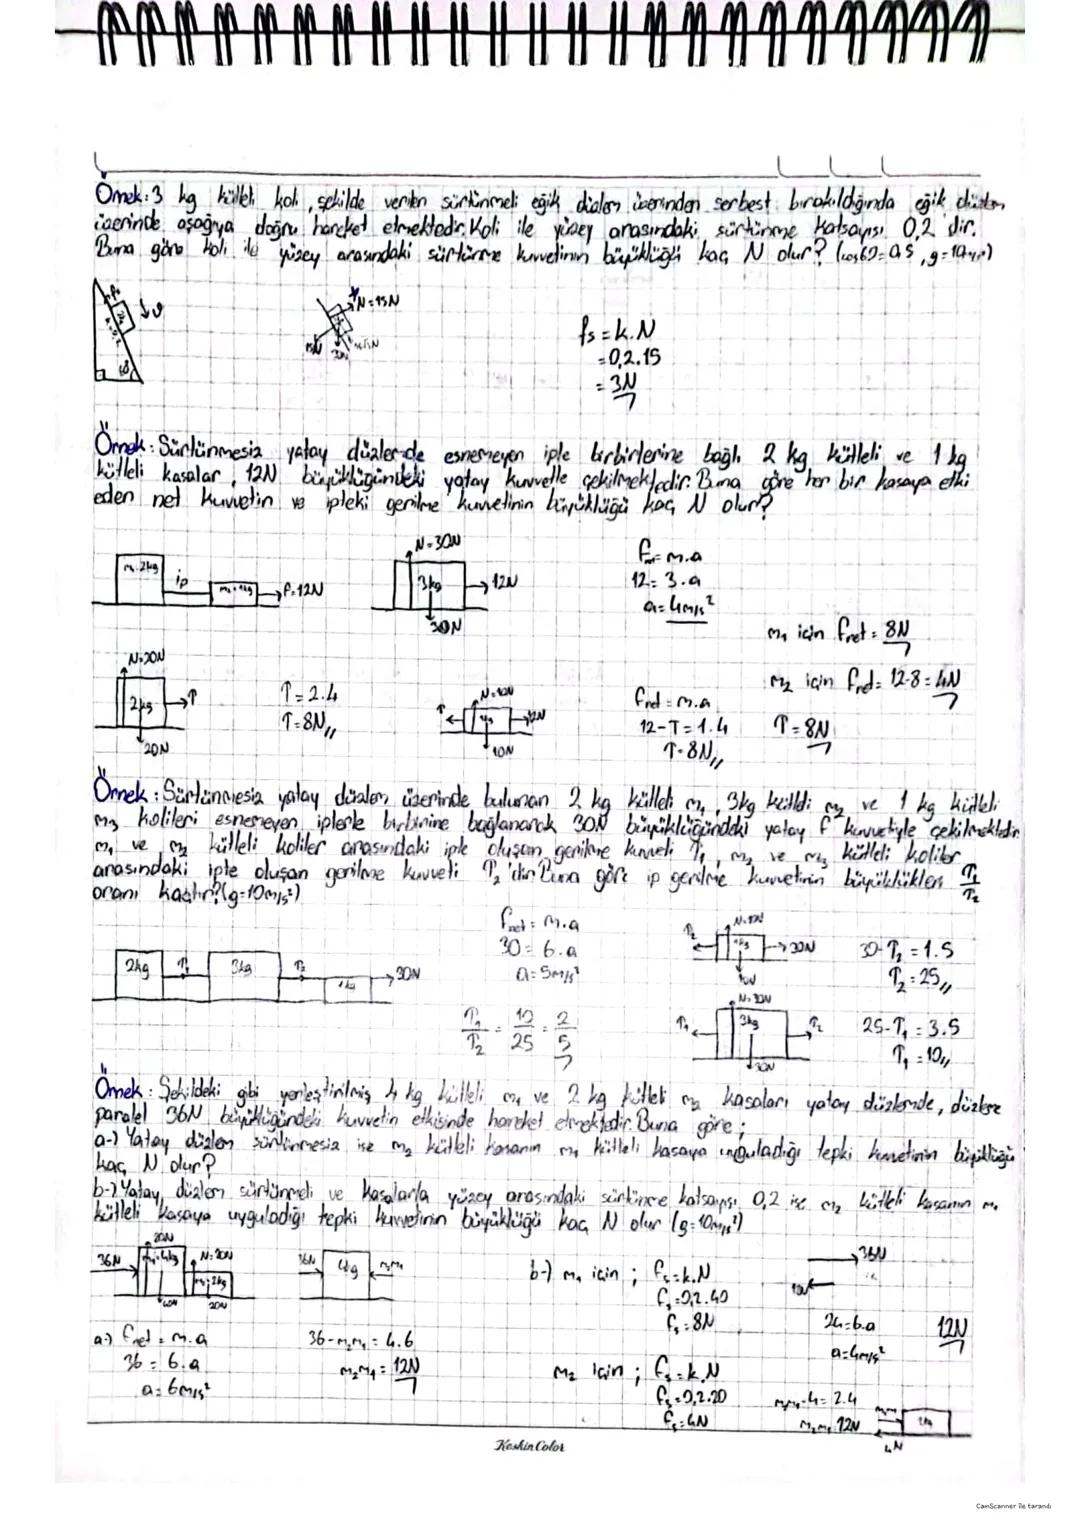 Örnek: 3 kg kütleli koli, şekilde verilen sürtünmeli eğik düzlem üzerinden serbest bırakıldığında eğik düzlem
üzerinde aşağıya doğru hareket etmektedir. Koli ile yüzey arasındaki sürtünme katsayısı 0,2 dir.
Buna göre koli ile yüzey arasındaki sürtünme kuvvetinin büyüklüğü kaç N olur? (cos60=0,5, g=10m/s²)
N=15N
fs=k.N
=0,2.15
=3N
Örnek: Sürtünmesiz yatay düzlemde esnemeyen iple birbirlerine bağlı 2 kg kütleli ve 1 kg
kütleli kasalar, 12N büyüklüğündeki yatay kuvvetle çekilmektedir. Buna göre her bir kasaya etki
eden net kuvvetin ve ipteki gerilme kuvvetinin büyüklüğü kaç N olur?
m₁=2kg ip m₂=1kg F=12N
N=30N 3kg 12N 30N
Fnet=m.a
12=3.a
a=4m/s²
m₁ için fnet=8N
m₂ için fnet=12-8=4N
T=8N
N=20N 2kg T 20N
T=2.4
T=8N
N=10N T 1kg 12N 10N
fnet=m.a
12-T=1.4
T=8N
Örnek: Sürtünmesiz yatay düzlem üzerinde bulunan 2 kg kütleli m₁, 3kg kütleli m₂ ve 1 kg kütleli
m₃ kolileri esnemeyen iplerle birbirine bağlanarak 30N büyüklüğündeki yatay F kuvvetiyle çekilmektedir
m₁ ve m₂ kütleli koliler arasındaki ipte oluşan gerilme kuvveti T₁, m₂ ve m₃ kütleli koliler
arasındaki ipte oluşan gerilme kuvveti T₂'dir. Buna göre ip gerilme kuvvetinin büyüklükleri T₁/T₂
oranı kaçtır? (g=10m/s²)
2kg T₁ 3kg T₂ 1kg 30N
fnet=m.a
30=6.a
a=5m/s²
T₁/T₂ = 10/25 = 2/5
N=10N T₂ 1kg 30N 10N
30-T₂=1.5
T₂=25
N=30N T₁ 3kg T₂ 30N
25-T₁=3.5
T₁=10
Örnek: Şekildeki gibi yerleştirilmiş 4 kg kütleli m₁ ve 2 kg kütleli m₂ kasaları yatay düzlemde, düzleme
paralel 36N büyüklüğündeki kuvvetin etkisinde hareket etmektedir. Buna göre;
a-) Yatay düzlem sürtünmesiz ise m₂ kütleli kasanın m₁ kütleli kasaya uyguladığı tepki kuvvetinin büyüklüğü
kaç N olur?
b-) Yatay düzlem sürtünmeli ve kasalarla yüzey arasındaki sürtünme katsayısı 0,2 ise m₂ kütleli kasanın m₁
kütleli kasaya uyguladığı tepki kuvvetinin büyüklüğü kaç N olur (g=10m/s²)
36N m₁=4kg N=20N m₂=2kg 40N 20N
36N 4kg m₂m₁
a-) fnet=m.a
36=6.a
a=6m/s²
36-m₂m₁=4.6
m₂m₁=12N
b-) m₁ için; fs=k.N
fs=0,2.40
fs=8N
m₂ için; fs=k.N
fs=0,2.20
fs=4N
36N
24=6.a
a=4m/s²
12N
-4=2.4
12N
2kg
4N
Keskin Color
CamScanner ile tarandı